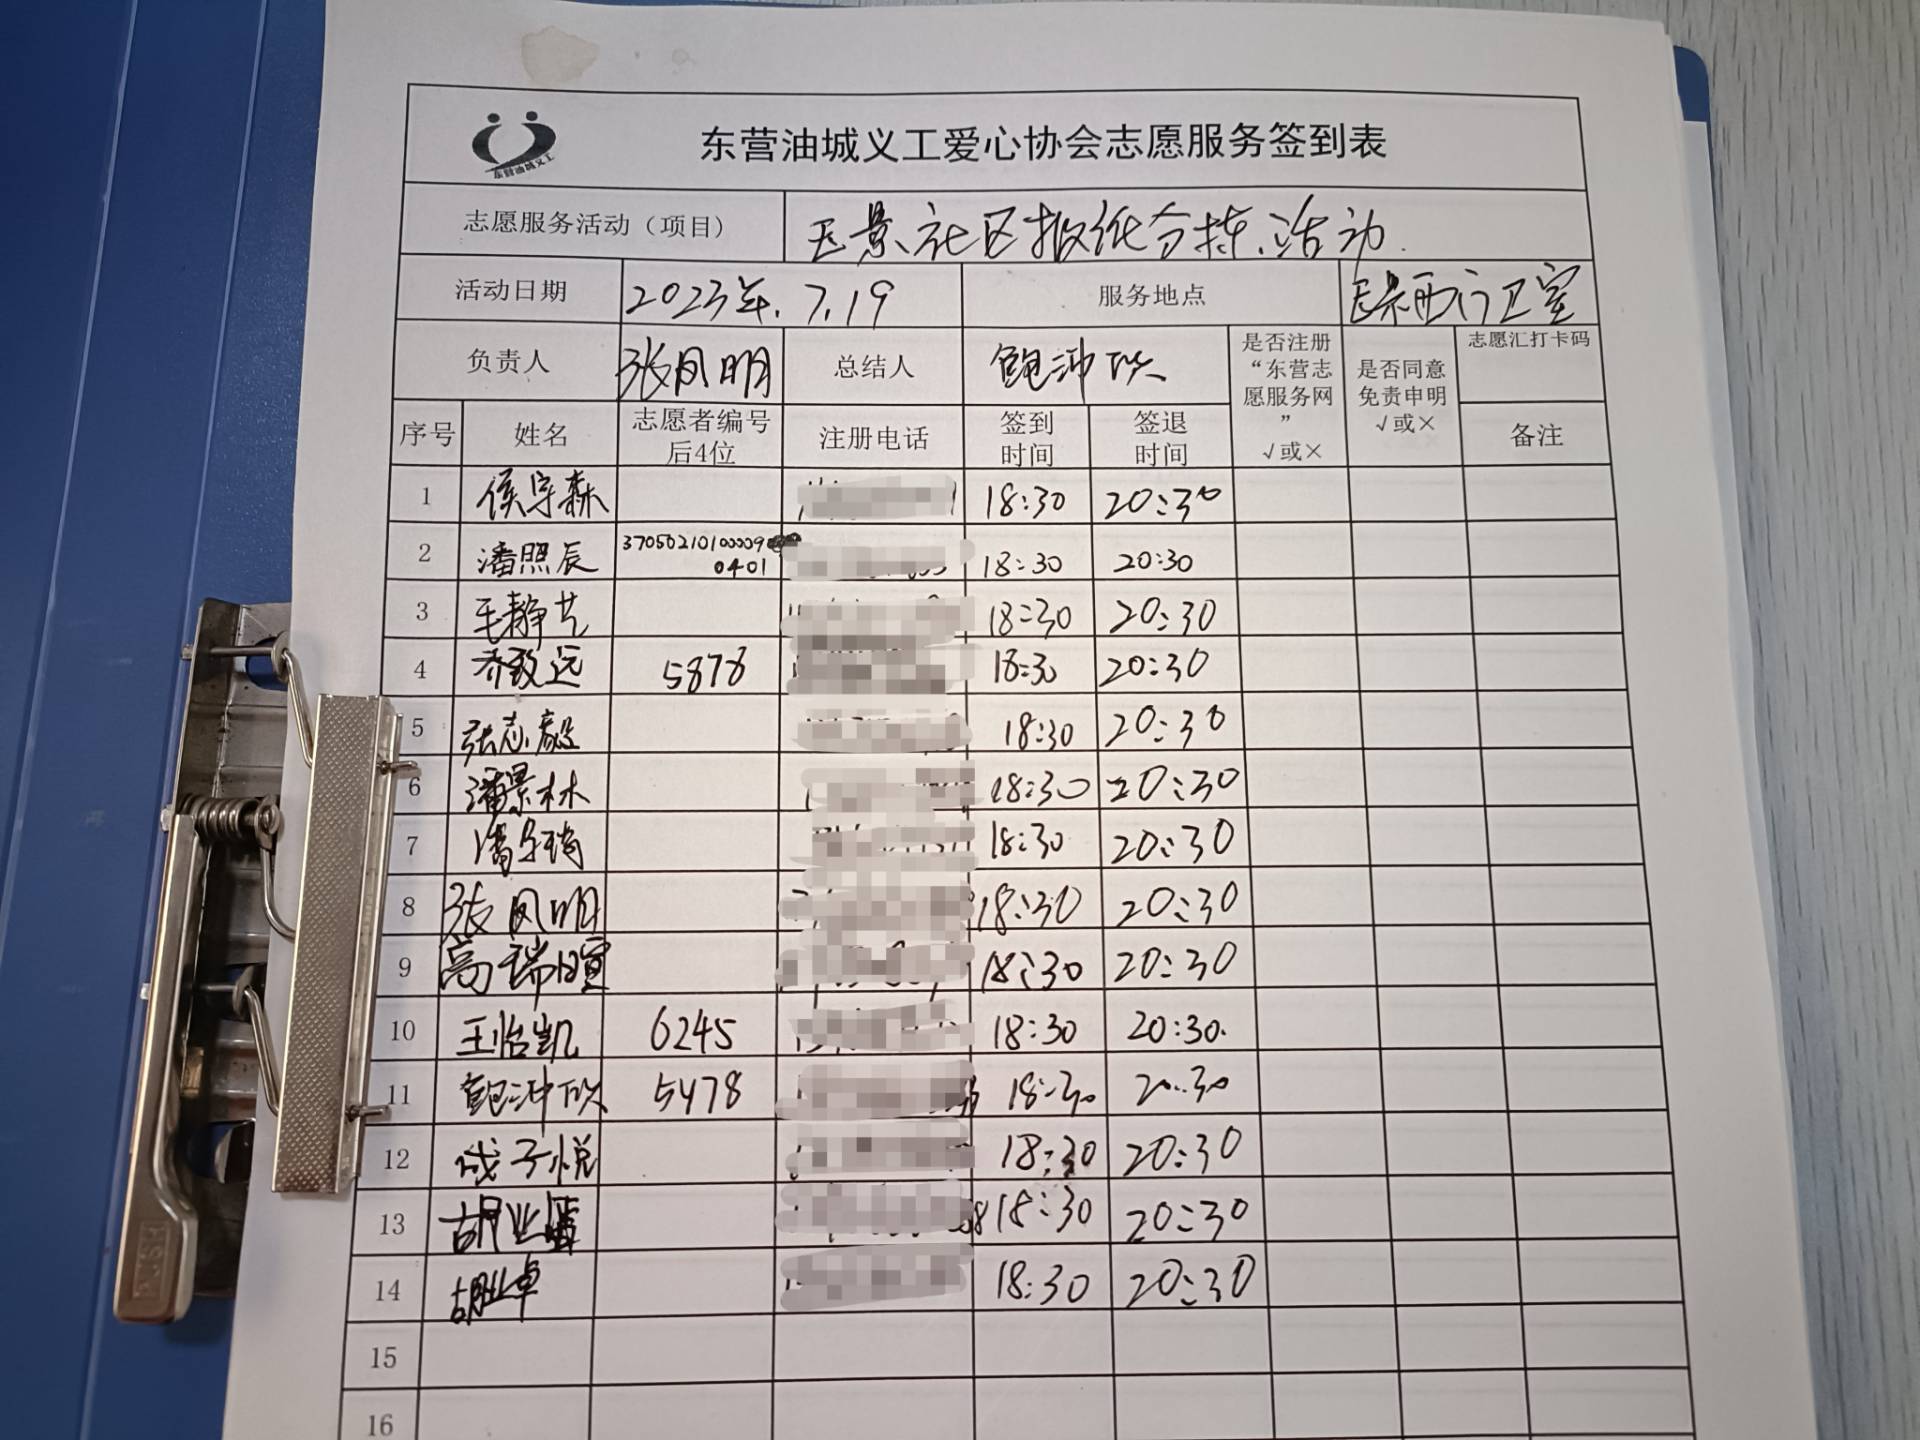 东营油城义工
东营油城义工爱心协会志愿服务签到表
志愿服务活动（项目） 玉景社区报纸分拣活动.
活动日期 2023年.7.19 服务地点 玉景西门卫室
负责人 张凤明 总结人 鲍冲 是否注册“东营志愿服务网” √或× 是否同意免责申明 √或× 志愿汇打卡码
序号 姓名 志愿者编号后4位 注册电话 签到时间 签退时间 备注
1 侯宇森 18:30 20:30
2 潘照辰 37050210100009 0401 18:30 20:30
3 毛静艺 18:30 20:30
4 乔致远 5878 18:30 20:30
5 张志毅 18:30 20:30
6 潘景林 18:30 20:30
7 潘 18:30 20:30
8 张凤明 18:30 20:30
9 高瑞暄 18:30 20:30
10 王怡凯 6245 18:30 20:30.
11 鲍冲 5478 18:30 20:30
12 成子悦 18:30 20:30
13 胡业 18:30 20:30
14 胡业卓 18:30 20:30
15
16
PUSH